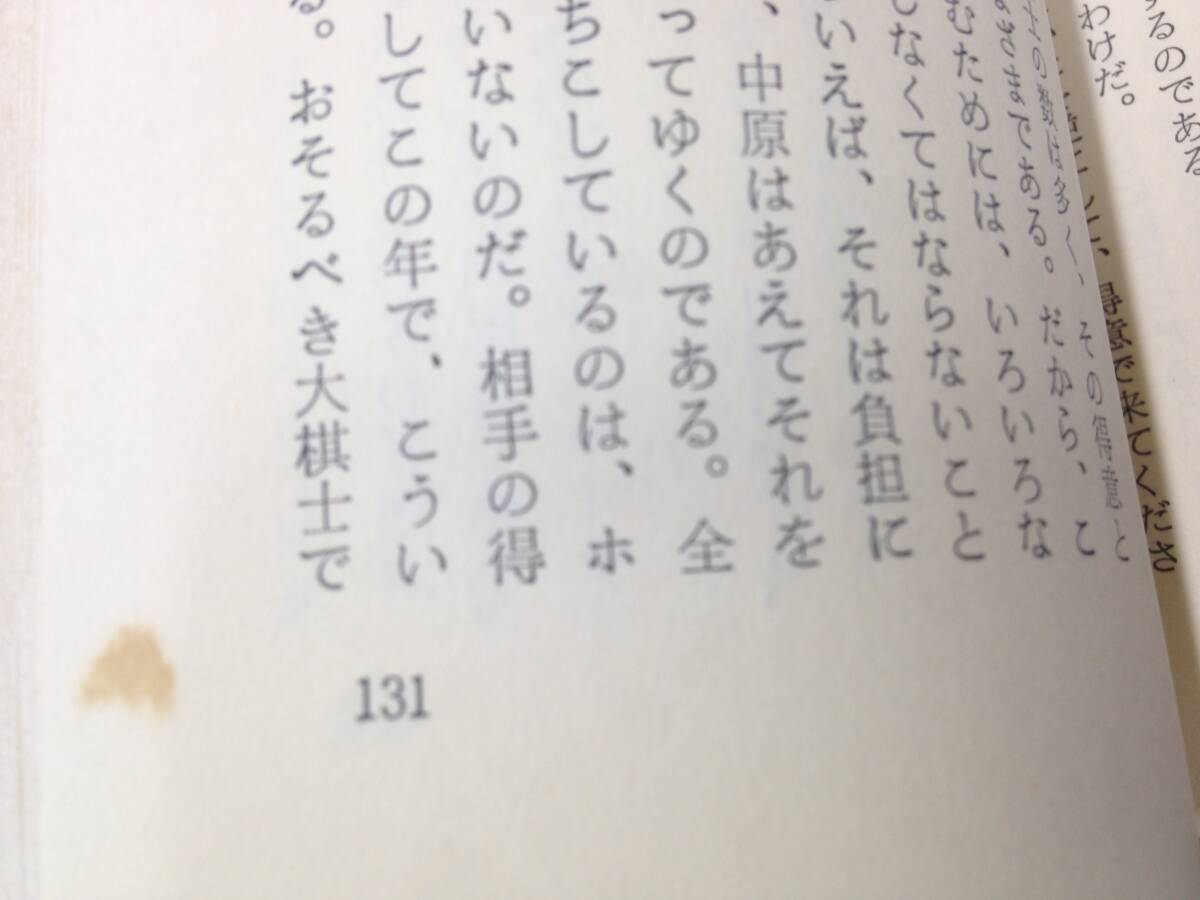 するのである
わけだ。
得意で来てくださ
士の数は多く、その得意と
まざまである。だから、こ
むためには、いろいろな
しなくてはならないこと
いえば、それは負担に
、中原はあえてそれを
ってゆくのである。全
ちこしているのは、ホ
いないのだ。相手の得
してこの年で、こうい
る。おそるべき大棋士で
131